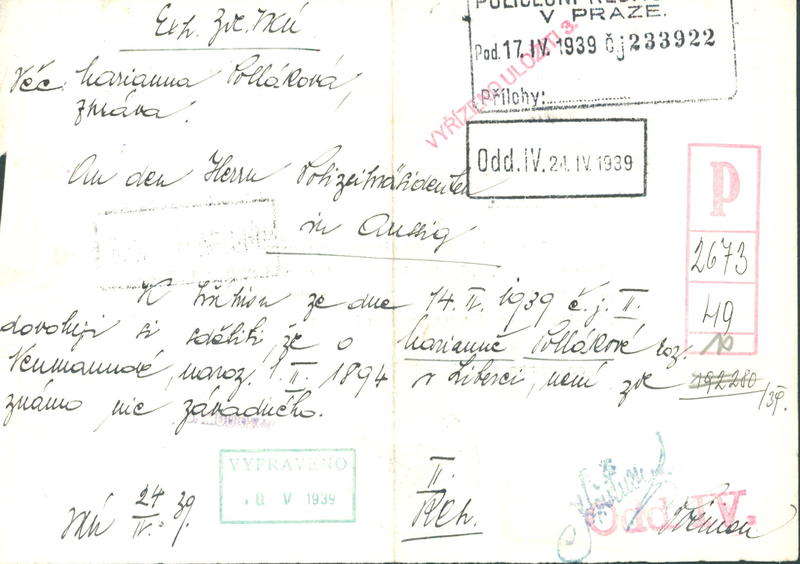 POLICEJNÍ ŘED
V PRAZE.
Pod. 17. IV. 1939 Čj 233922
Přílohy:
VYŘÍZENO ULOŽITI 3.
Odd. IV. 24. IV. 1939
Exh.
Věc: Marianna Polláková,
zpráva.
An den Herrn Polizeipräsidenten
in Aussig
P
2673
49
10
K přípisu ze dne 14. IV. 1939 č. j. II.
dovoluji si sděliti, že o Marianně Pollákové roz.
Neumannové, naroz. 1. II. 1894 v Liberci, není zde
192280/39.
známo nic závadného.
VYPRAVENO
8 V 1939
24
IV. 39.
II.
Odd. IV.